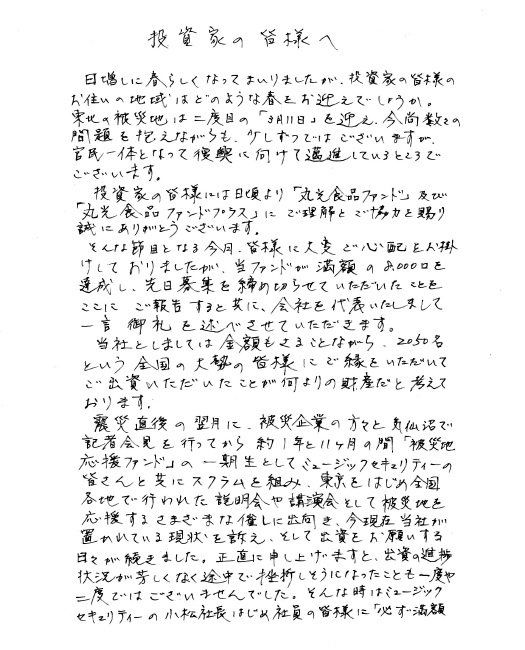 投資家の皆様へ
日増しに春らしくなってまいりましたが、投資家の皆様の
お住いの地域はどのような春をお迎えでしょうか。
東北の被災地は二度目の「3月11日」を迎え、今尚数々の
問題を抱えながらも、少しずつではございますが、
官民一体となって復興に向けて邁進しているところで
ございます。
投資家の皆様には日頃より「丸光食品ファンド」及び
「丸光食品ファンドプラス」にご理解とご協力を賜り
誠にありがとうございます。
そんな節目となる今月、皆様に大変ご心配をお掛
けしておりましたが、当ファンドが満額の8,000口を
達成し、先日募集を締め切らせていただいたことを
ここにご報告すると共に、会社を代表いたしまして
一言御礼を述べさせていただきます。
当社としましては金額もさることながら、2050名
という全国の大勢の皆様にご縁をいただいて
ご出資いただいたことが何よりの財産だと考えて
おります。
震災直後の翌月に、被災企業の方々と気仙沼で
記者会見を行ってから約1年と11ヶ月の間「被災地
応援ファンド」の一期生としてミュージックセキュリティーの
皆さんと共にスクラムを組み、東京をはじめ全国
各地で行われた説明会や講演会として被災地を
応援するさまざまな催しに出向き、今現在当社が
置かれている現状を訴え、そして出資をお願いする
日々が続きました。正直に申し上げますと、出資の進捗
状況が芳しくなく途中で挫折しそうになったことも一度や
二度ではございませんでした。そんな時はミュージック
セキュリティーの小松社長はじめ社員の皆様に「必ず満額